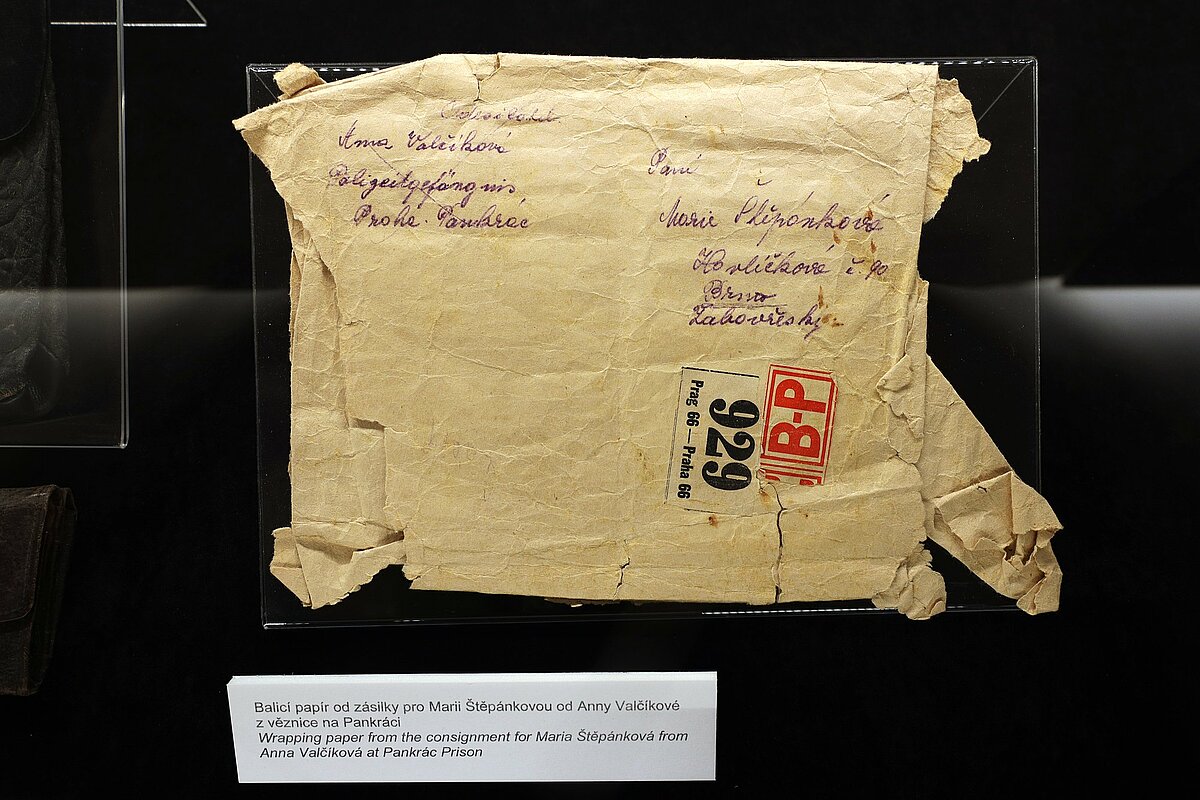 Odesílatel
Anna Valčíková
Polizeitgefängnis
Praha - Pankrác
Paní
Marie Štěpánková
Havlíčková č. 90
Brno
Žabovřesky
B-P
929
Prag 66 — Praha 66
Balicí papír od zásilky pro Marii Štěpánkovou od Anny Valčíkové
z věznice na Pankráci
Wrapping paper from the consignment for Maria Štěpánková from
Anna Valčíková at Pankrác Prison